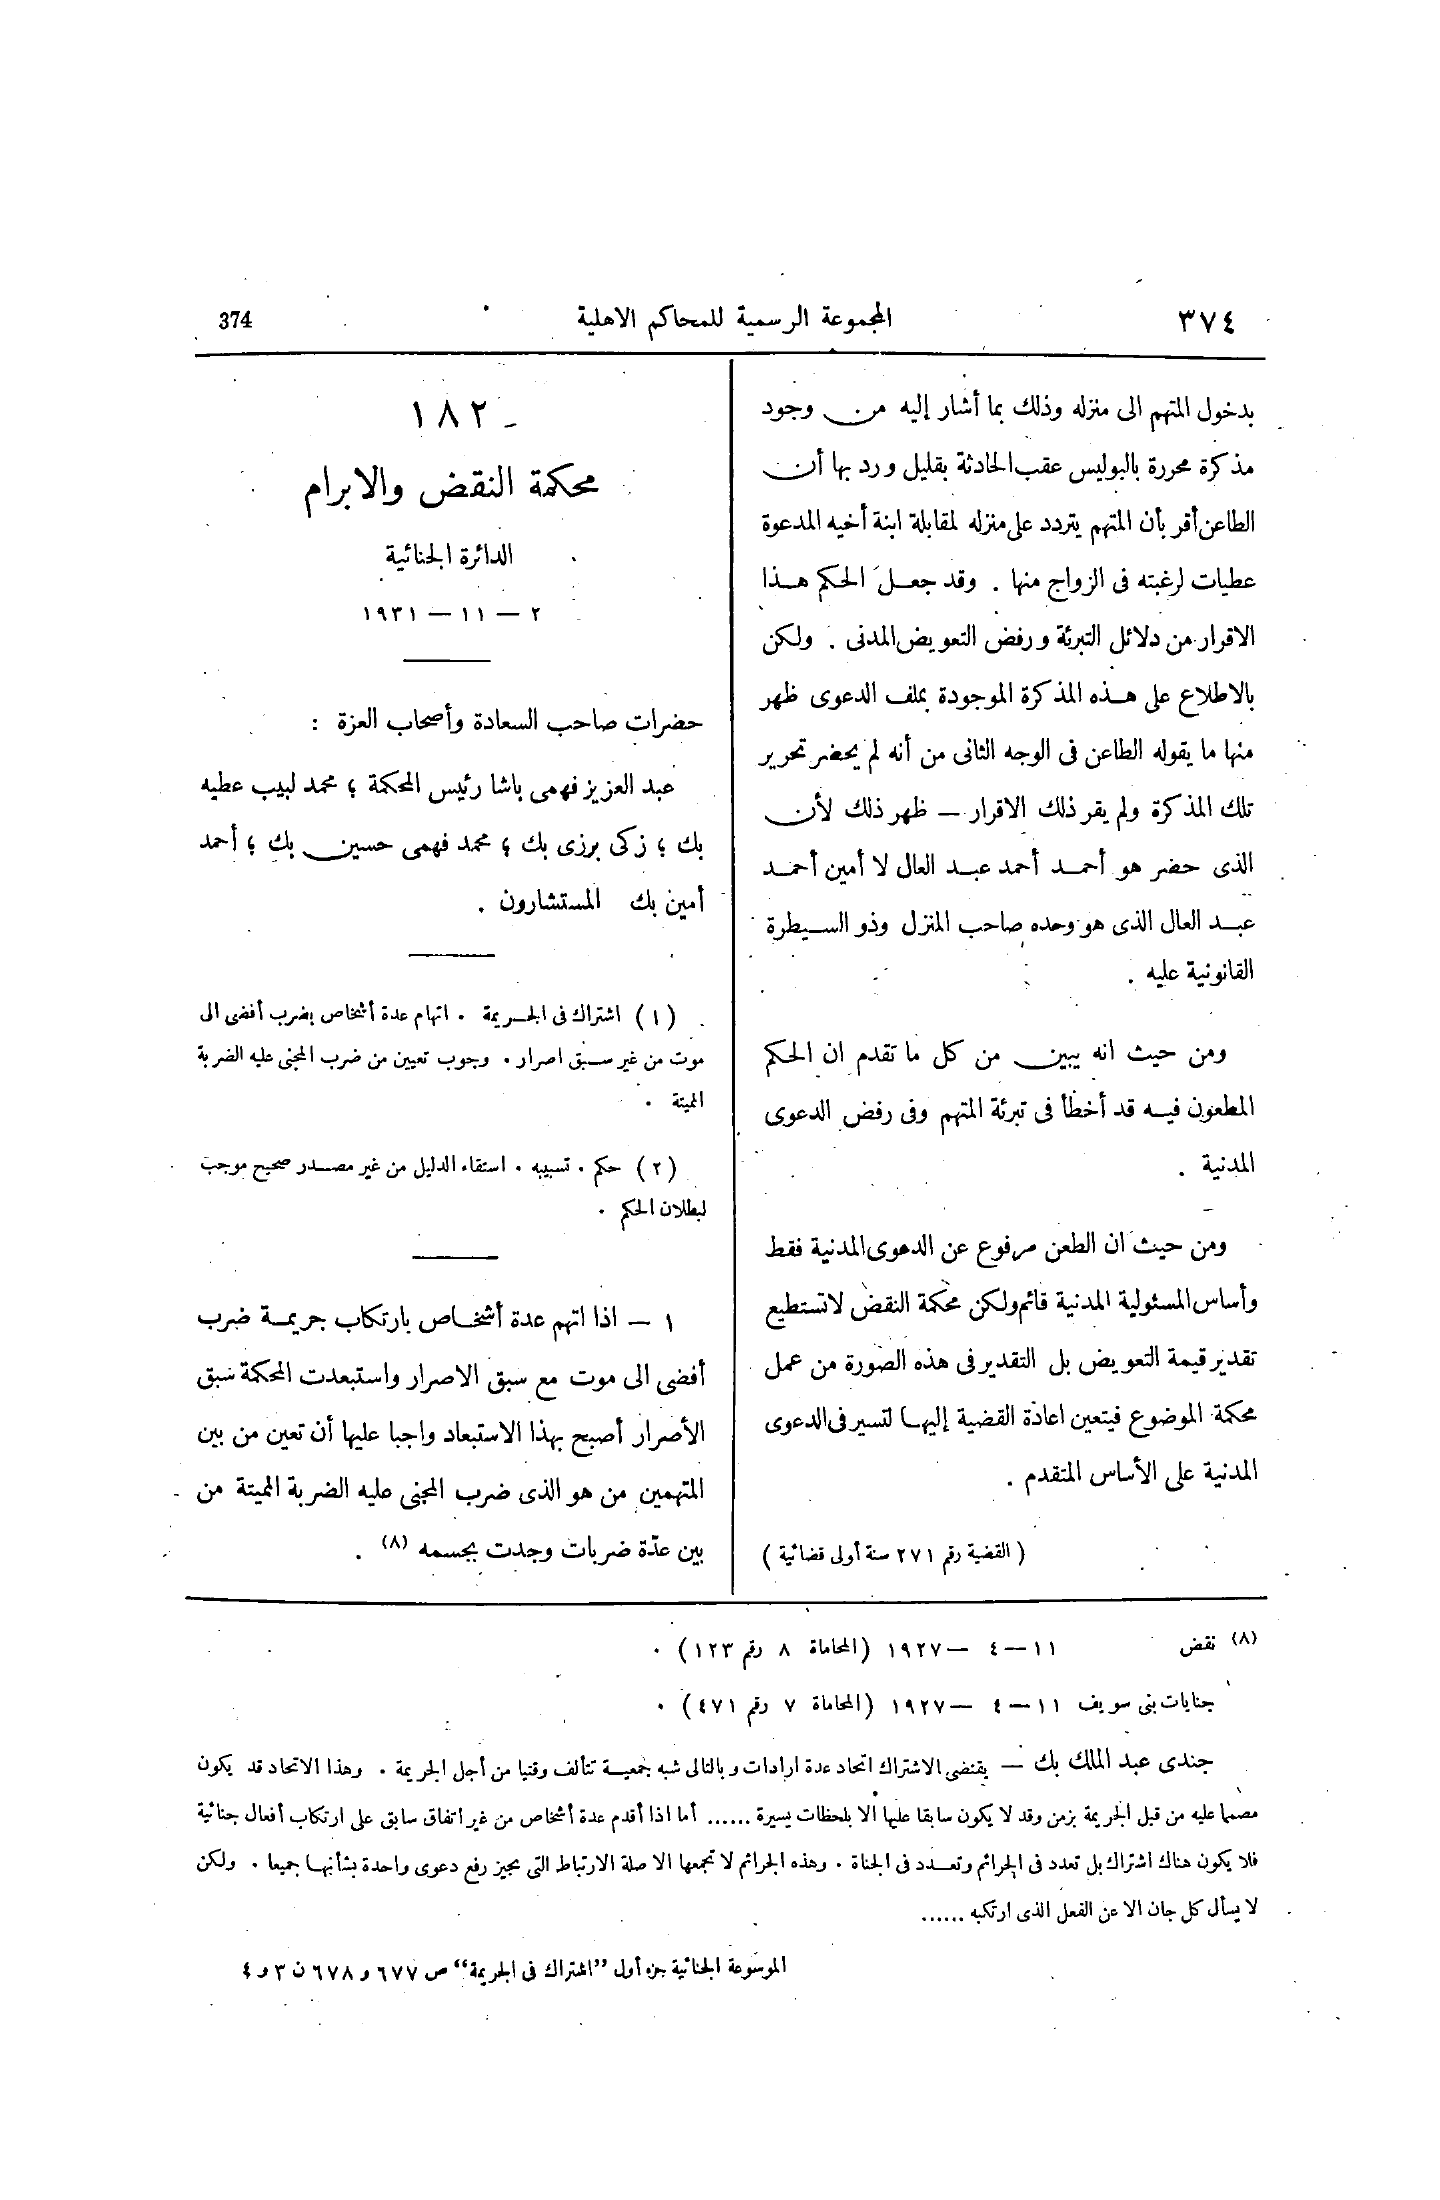 ٣٧٤ المجموعة الرسمية للمحاكم الاهلية 374
بدخول المتهم الى منزله وذلك بما أشار إليه من وجود
مذكرة محررة بالبوليس عقب الحادثة بقليل ورد بها أن
الطاعن أقر بأن المتهم يتردد على منزله لمقابلة ابنة أخيه المدعوة
عطيات لرغبته فى الزواج منها . وقد جعل الحكم هذا
الاقرار من دلائل التبرئة ورفض التعويض المدنى . ولكن
بالاطلاع على هذه المذكرة الموجودة بملف الدعوى ظهر
منها ما يقوله الطاعن فى الوجه الثانى من أنه لم يحضر تحرير
تلك المذكرة ولم يقر ذلك الاقرار – ظهر ذلك لأن
الذى حضر هو أحمد أحمد عبد العال لا أمين أحمد
عبد العال الذى هو وحده صاحب المنزل وذو السيطرة
القانونية عليه .
ومن حيث انه يبين من كل ما تقدم ان الحكم
المطعون فيه قد أخطأ فى تبرئة المتهم وفى رفض الدعوى
المدنية .
ومن حيث ان الطعن مرفوع عن الدعوى المدنية فقط
وأساس المسئولية المدنية قائم ولكن محكمة النقض لا تستطيع
تقدير قيمة التعويض بل التقدير فى هذه الصورة من عمل
محكمة الموضوع فيتعين اعادة القضية إليها لتسير فى الدعوى
المدنية على الأساس المتقدم .
( القضية رقم ٢٧١ سنة أولى قضائية )
١٨٢
محكمة النقض والابرام
الدائرة الجنائية
٢ – ١١ – ١٩٣١
حضرات صاحب السعادة وأصحاب العزة :
عبد العزيز فهمى باشا رئيس المحكمة ؛ محمد لبيب عطيه
بك ؛ زكى برزى بك ؛ محمد فهمى حسين بك ؛ أحمد
أمين بك المستشارون .
(١) اشتراك فى الجريمة . اتهام عدة أشخاص بضرب أفضى الى
موت من غير سبق اصرار . وجوب تعيين من ضرب المجنى عليه الضربة
المميتة .
(٢) حكم . تسبيبه . استقاء الدليل من غير مصدر صحيح موجب
لبطلان الحكم .
١ – اذا اتهم عدة أشخاص بارتكاب جريمة ضرب
أفضى الى موت مع سبق الاصرار واستبعدت المحكمة سبق
الأصرار أصبح بهذا الاستبعاد واجبا عليها أن تعين من بين
المتهمين من هو الذى ضرب المجنى عليه الضربة المميتة من
بين عدّة ضربات وجدت بجسمه (٨) .
(٨) نقض ١١ – ٤ – ١٩٢٧ (المحاماة ٨ رقم ١٢٣) .
جنايات بنى سويف ١١ – ٤ – ١٩٢٧ (المحاماة ٧ رقم ٤٧١) .
جندى عبد الملك بك – يقتضى الاشتراك اتحاد عدة ارادات وبالتالى شبه جمعية تتألف وقتيا من أجل الجريمة . وهذا الاتحاد قد يكون
مصمما عليه من قبل الجريمة بزمن وقد لا يكون سابقا عليها ألا بلحظات يسيرة ...... أما اذا أقدم عدة أشخاص من غير اتفاق سابق على ارتكاب أفعال جنائية
فلا يكون هناك اشتراك بل تعدد فى الجرائم وتعدد فى الجناة . وهذه الجرائم لا تجمعها الا صلة الارتباط التى تجيز رفع دعوى واحدة بشأنها جميعا . ولكن
لا يسأل كل جان الا عن الفعل الذى ارتكبه ......
الموسوعة الجنائية جزء أول "اشتراك فى الجريمة" ص ٦٧٧ و ٦٧٨ ن ٣ و ٤